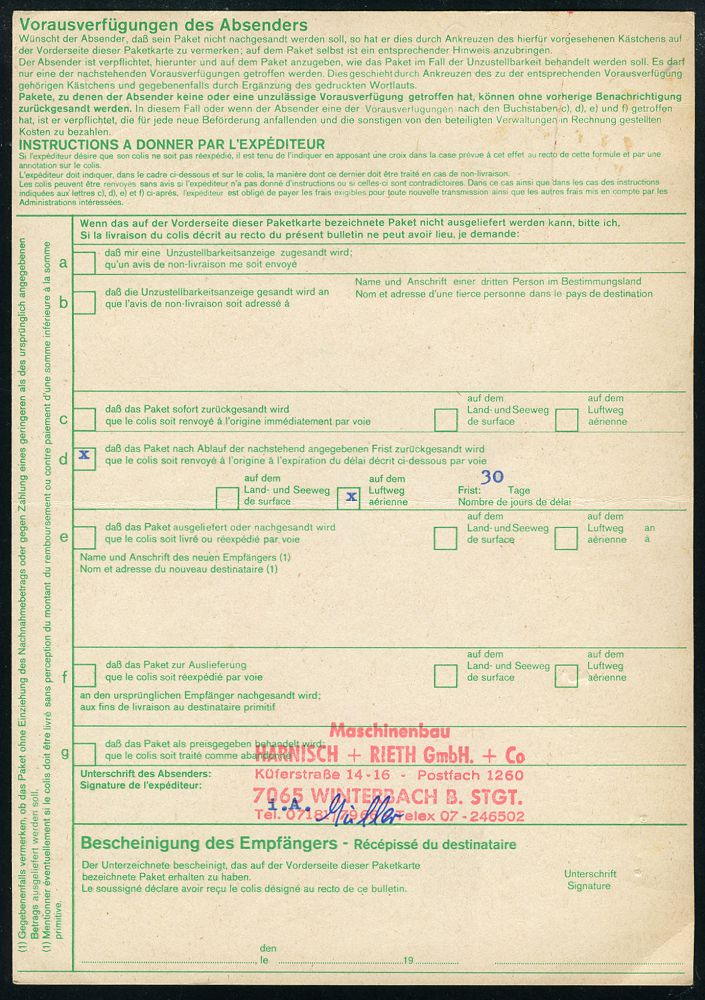 Vorausverfügungen des Absenders
Wünscht der Absender, daß sein Paket nicht nachgesandt werden soll, so hat er dies durch Ankreuzen des hierfür vorgesehenen Kästchens auf
der Vorderseite dieser Paketkarte zu vermerken; auf dem Paket selbst ist ein entsprechender Hinweis anzubringen.
Der Absender ist verpflichtet, hierunter und auf dem Paket anzugeben, wie das Paket im Fall der Unzustellbarkeit behandelt werden soll. Es darf
nur eine der nachstehenden Vorausverfügungen getroffen werden. Dies geschieht durch Ankreuzen des zu der entsprechenden Vorausverfügung
gehörigen Kästchens und gegebenenfalls durch Ergänzung des gedruckten Wortlauts.
Pakete, zu denen der Absender keine oder eine unzulässige Vorausverfügung getroffen hat, können ohne vorherige Benachrichtigung
zurückgesandt werden. In diesem Fall oder wenn der Absender eine der Vorausverfugungen nach den Buchstaben c), d), e) und f) getroffen
hat, ist er verpflichtet, die für jede neue Beförderung anfallenden und die sonstigen von den beteiligten Verwaltungen in Rechnung gestellten
Kosten zu bezahlen.
INSTRUCTIONS A DONNER PAR L'EXPÉDITEUR
Si l'expéditeur désire que son colis ne soit pas réexpédié, il est tenu de l'indiquer en apposant une croix dans la case prévue à cet effet au recto de cette formule et par une
annotation sur le colis.
L'expéditeur doit indiquer, dans le cadre ci-dessous et sur le colis, la manière dont ce dernier doit être traité en cas de non-livraison.
Les colis peuvent être renvoyés sans avis si l'expéditeur n'a pas donné d'instructions ou si celles-ci sont contradictoires. Dans ce cas ainsi que dans les cas des instructions
indiquées aux lettres c), d), e) et f) ci-après, l'expéditeur est obligé de payer les frais exigibles pour toute nouvelle transmission ainsi que les autres frais mis en compte par les
Administrations intéressées.
Wenn das auf der Vorderseite dieser Paketkarte bezeichnete Paket nicht ausgeliefert werden kann, bitte ich,
Si la livraison du colis décrit au recto du présent bulletin ne peut avoir lieu, je demande:
a
daß mir eine Unzustellbarkeitsanzeige zugesandt wird;
qu'un avis de non-livraison me soit envoyé
b
daß die Unzustellbarkeitsanzeige gesandt wird an
que l'avis de non-livraison soit adressé à
Name und Anschrift einer dritten Person im Bestimmungsland
Nom et adresse d'une tierce personne dans le pays de destination
c
daß das Paket sofort zurückgesandt wird
que le colis soit renvoyé à l'origine immédiatement par voie
auf dem
Land- und Seeweg
de surface
auf dem
Luftweg
aérienne
d
x
daß das Paket nach Ablauf der nachstehend angegebenen Frist zurückgesandt wird
que le colis soit renvoyé à l'origine à l'expiration du délai décrit ci-dessous par voie
auf dem
Land- und Seeweg
de surface
x
auf dem
Luftweg
aérienne
30
Frist: Tage
Nombre de jours de délai
e
daß das Paket ausgeliefert oder nachgesandt wird
que le colis soit livré ou réexpédié par voie
auf dem
Land- und Seeweg
de surface
auf dem
Luftweg
aérienne
an
à
Name und Anschrift des neuen Empfängers (1)
Nom et adresse du nouveau destinataire (1)
f
daß das Paket zur Auslieferung
que le colis soit réexpédié par voie
auf dem
Land- und Seeweg
de surface
auf dem
Luftweg
aérienne
an den ursprünglichen Empfänger nachgesandt wird;
aux fins de livraison au destinataire primitif
g
daß das Paket als preisgegeben behandelt wird;
que le colis soit traité comme abandonné
Maschinenbau
HARNISCH + RIETH GmbH. + Co
Küferstraße 14-16 - Postfach 1260
7065 WINTERBACH B. STGT.
Tel. 07181/ Telex 07-246502
Unterschrift des Absenders:
Signature de l'expéditeur:
i.A. Müller
Bescheinigung des Empfängers - Récépissé du destinataire
Der Unterzeichnete bescheinigt, das auf der Vorderseite dieser Paketkarte
bezeichnete Paket erhalten zu haben.
Le soussigné déclare avoir reçu le colis désigné au recto de ce bulletin.
Unterschrift
Signature
den
le 19
(1) Gegebenenfalls vermerken, ob das Paket ohne Einziehung des Nachnahmebetrags oder gegen Zahlung eines geringeren als des ursprünglich angegebenen
Betrags ausgeliefert werden soll.
(1) Mentionner éventuellement si le colis doit être livré sans perception du montant du remboursement ou contre paiement d'une somme inférieure à la somme
primitive.